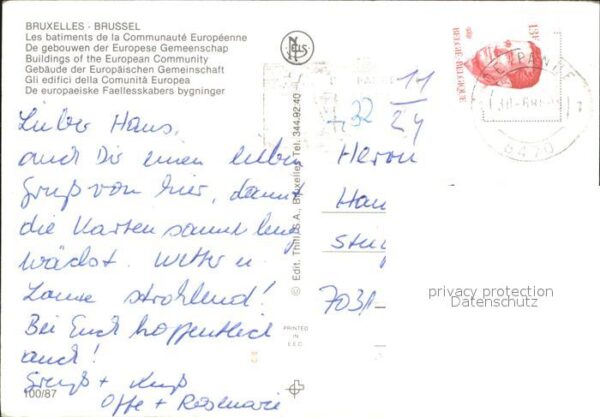 BRUXELLES - BRUSSEL
Les batiments de la Communauté Européenne
De gebouwen der Europese Gemeenschap
Buildings of the European Community
Gebäude der Europäischen Gemeinschaft
Gli edifici della Comunità Europea
De europaeiske Faellesskabers bygninger
NELS
13F
BELGIE-BELGIQUE
DE PANNE
8470
11
24
32
Lieber Hans,
auch Dir einen lieben
Gruß von hier, damit
die Kartensammlung
wächst. Wetter u.
Laune strahlend!
Bei Euch hoffentlich
auch!
Gruß + Kuß
Offe + Rosmarie
100/87
© Edit. Thill S.A., Bruxelles Tel. 344.92.40
PRINTED
IN
E.E.C.
Herrn
Han
703
privacy protection
Datenschutz